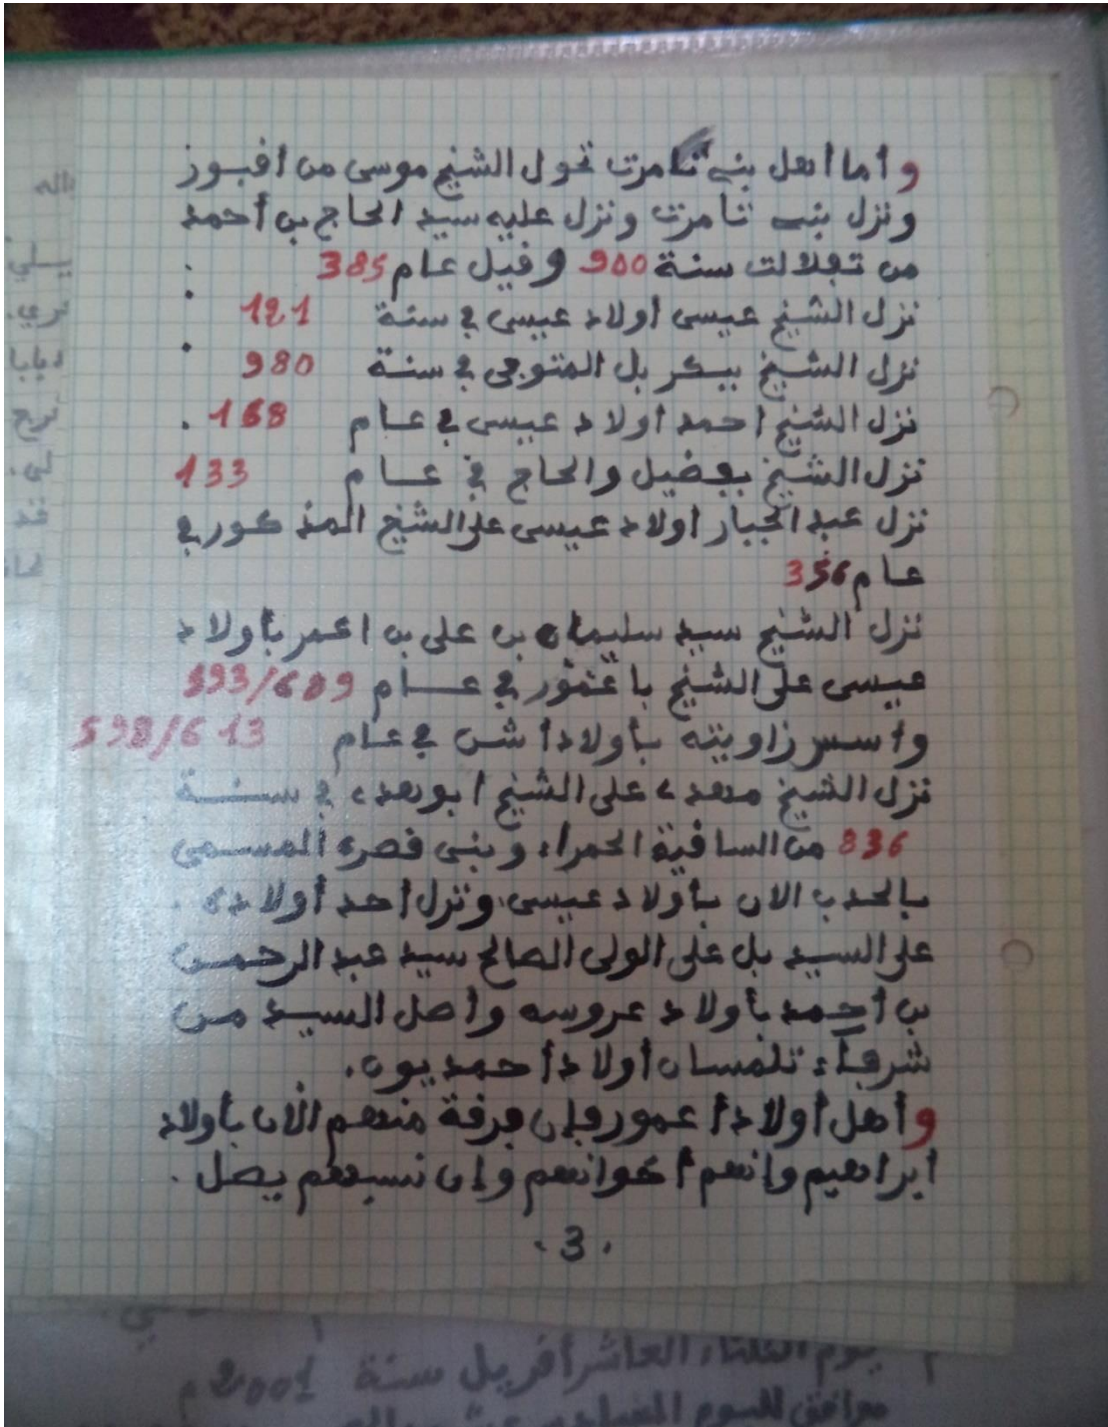 وأما أهل بني تامرت تحول الشيخ موسى من أقبوز
ونزل بني تامرت ونزل عليه سيد الحاج بن أحمد
من تفلالت سنة 900 وفيل عام 385
نزل الشيخ عيسى أولاد عيسى في سنة 121
نزل الشيخ بيكر بل المتوجي في سنة 980
نزل الشيخ احمد أولاد عيسى في عام 168
نزل الشيخ بعضيل والحاج في عام 133
نزل عبد الجبار أولاد عيسى على الشيخ المذكور في
عام 356
نزل الشيخ سيد سليمان بن علي بن اعمر بأولاد
عيسى على الشيخ باعمور في عام 593/689
وأسس زاويته بأولاد أشن في عام 598/613
نزل الشيخ مهدي على الشيخ ابوهدى في سنة
836 من السافية الحمراء وبنى فصره المسمى
بالحدب الان بأولاد عيسى ونزل أحد أولاده
على السيد بل على الولي الصالح سيد عبد الرحمن
بن أحمد بأولاد عروسه وأصل السيد من
شرفاء تلمسان أولاد أحمديون.
وأهل أولاد أعمور فإن فرفة منهم الآن بأولاد
ابراهيم وإنهم أخوانهم وإن نسبهم يصل.
.3.
يوم الثلثاء العاشر أفريل سنة 2001م
موافق لليوم